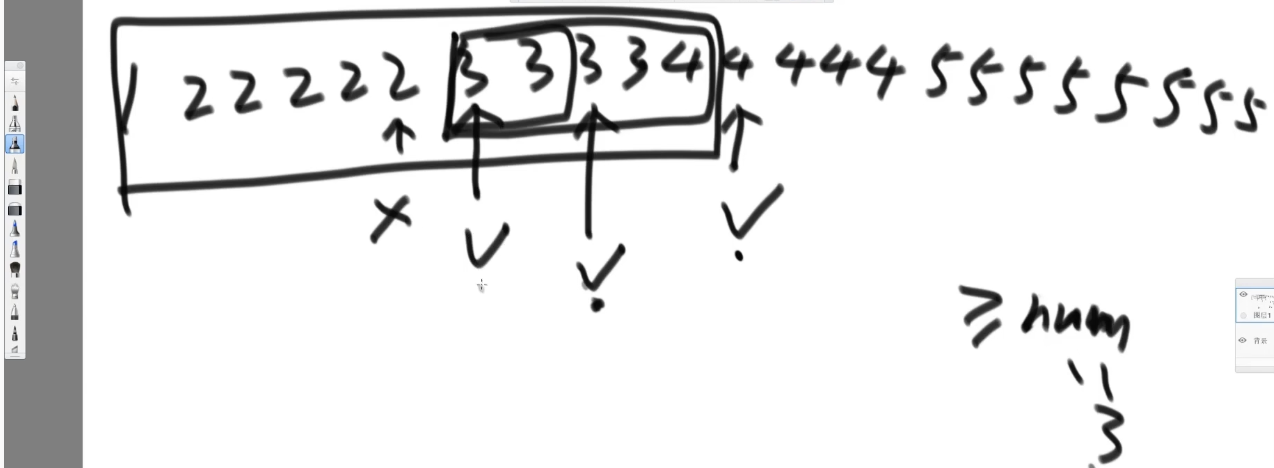 1 2 2 2 2 2 3 3 3 3 4 4 4 4 4 5 5 5 5 5 5 5 5
≥ num
3
图层1
背景